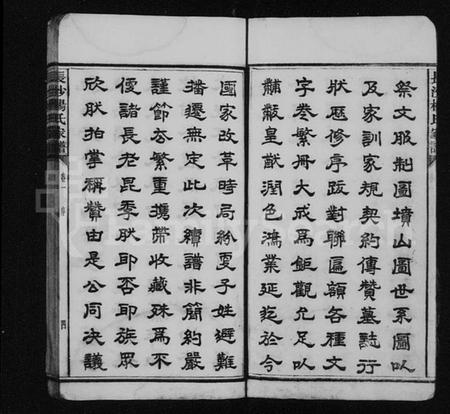 長沙楊氏家譜
祭文服制圖墳山圖世系圖以
及家訓家規契約傳贊墓誌行
狀歷修序跋對聯匾額各種文
字卷繁冊大成爲鉅觀允足以
黼黻皇猷潤色鴻業延迄於今
國家改革時局紛更子姓避難
播遷無定此次續譜非簡約嚴
謹節去繁重攜帶收藏殊爲不
便諸長老昆季肰耶否耶族衆
欣肰拍掌稱贊由是公同決議
長沙楊氏家譜
卷一
四